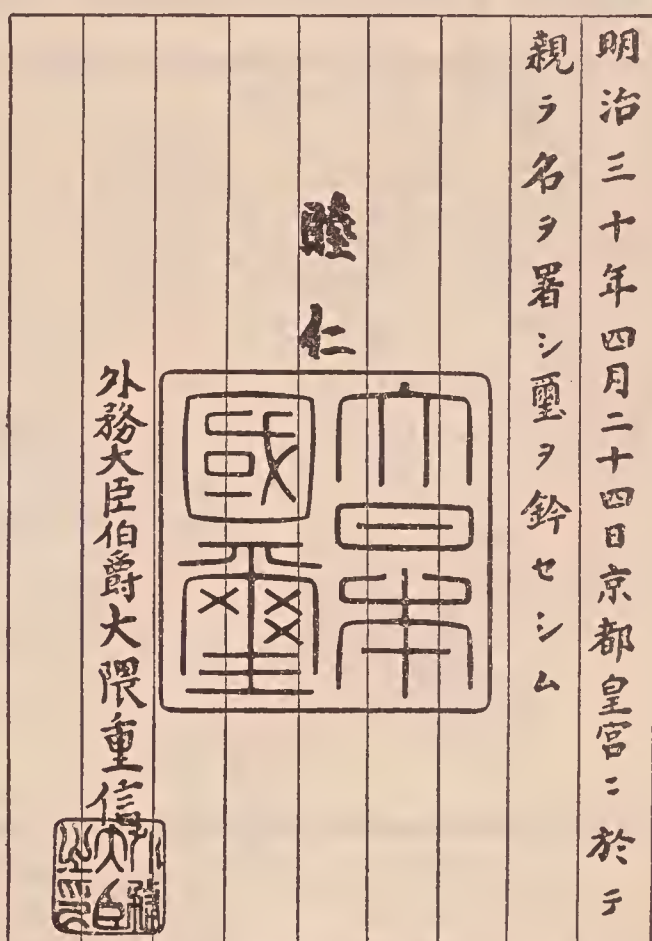 明治三十年四月二十四日京都皇宮ニ於テ
親ラ名ヲ署シ璽ヲ鈐セシム
睦仁
大日本
國璽
外務大臣伯爵大隈重信
外務
大臣
之印